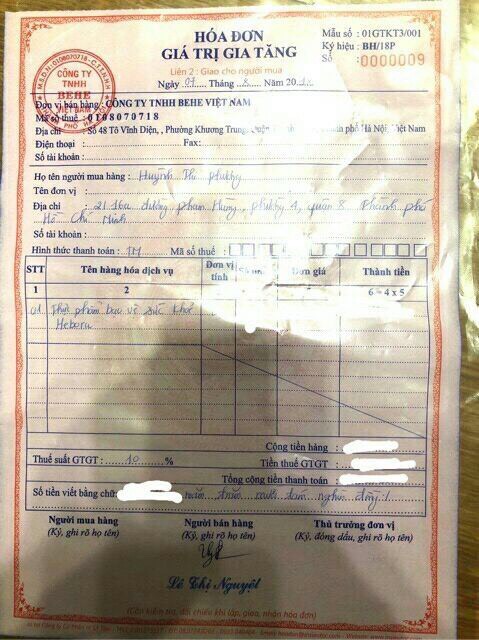 HÓA ĐƠN
GIÁ TRỊ GIA TĂNG
Mẫu số : 01GTKT3/001
Ký hiệu : BH/18P
Số : 0000009
Liên 2 : Giao cho người mua
Ngày 07 Tháng 8 năm 20
M.S.D.N: 0108070718 - C.T.T.N.H.H
CÔNG TY
TNHH
BEHE
VIỆT NAM
Đơn vị bán hàng : CÔNG TY TNHH BEHE VIỆT NAM
Mã số thuế : 0108070718
Địa chỉ : Số 48 Tô Vĩnh Diện, , Phường Khương Trung, phố Hà Nội, Việt Nam
Điện thoại : Fax:
Số tài khoản :
Họ tên người mua hàng : Huỳnh Thị Phượng
Tên đơn vị :
Địa chỉ : 21 16a đường Phạm Hùng, phường 4, quận 8 Thành phố
Hồ Chí Minh
Số tài khoản:
Hình thức thanh toán : TM Mã số thuế :
STT Tên hàng hóa dịch vụ Đơn vị tính Đơn giá Thành tiền
1 2 6 = 4 x 5
01. Thực phẩm bảo vệ sức khỏe
Heberu
Cộng tiền hàng :
Thuế suất GTGT : 10 % Tiền thuế GTGT :
Tổng cộng tiền thanh toán
Số tiền viết bằng chữ: trăm mươi nghìn đồng./
Người mua hàng Người bán hàng Thủ trưởng đơn vị
(Ký, ghi rõ họ tên) (Ký, ghi rõ họ tên) (Ký, đóng dấu, ghi rõ họ tên)
Lê Thị Nguyệt
(Cần kiểm tra, đối chiếu khi lập, giao, nhận hóa đơn)